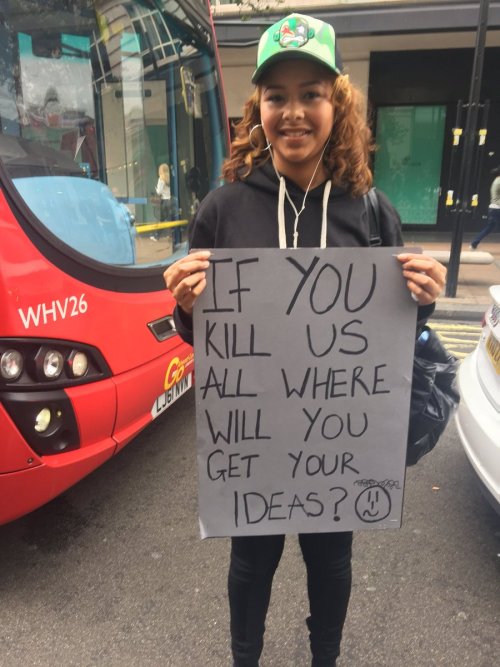 WHV26
Go
IF YOU
KILL US
ALL WHERE
WILL YOU
GET YOUR
IDEAS?